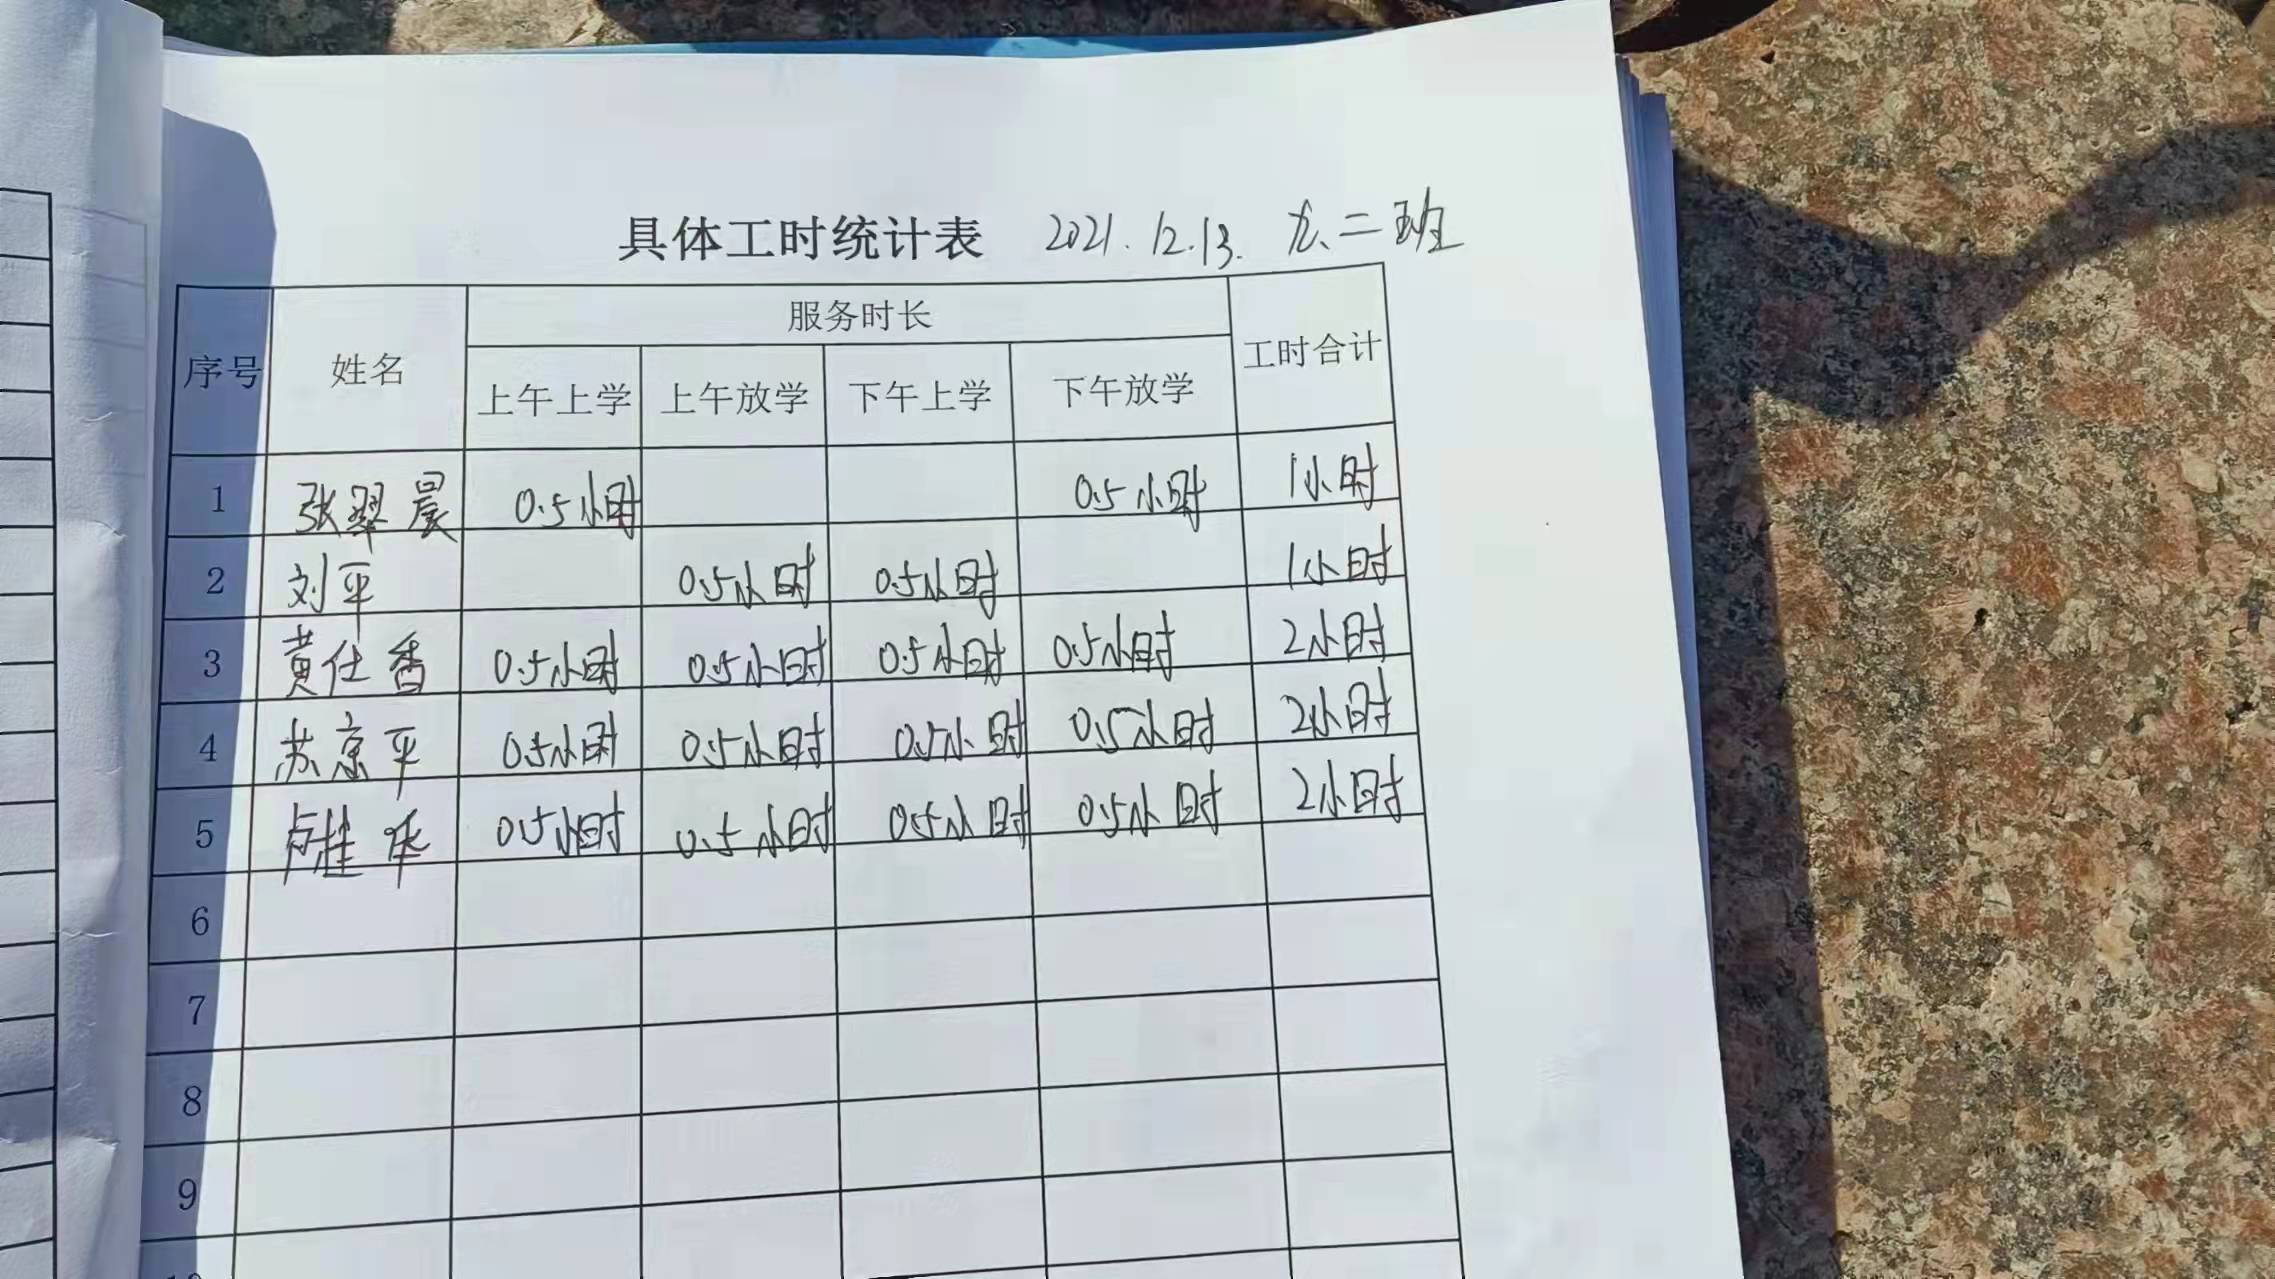 具体工时统计表 2021.12.13. 九、二班
序号 姓名 服务时长 工时合计
上午上学 上午放学 下午上学 下午放学
1 张翠晨 0.5小时 0.5小时 1小时
2 刘平 0.5小时 0.5小时 1小时
3 黄仕香 0.5小时 0.5小时 0.5小时 0.5小时 2小时
4 苏京平 0.5小时 0.5小时 0.5小时 0.5小时 2小时
5 卢桂华 0.5小时 0.5小时 0.5小时 0.5小时 2小时
6
7
8
9
10